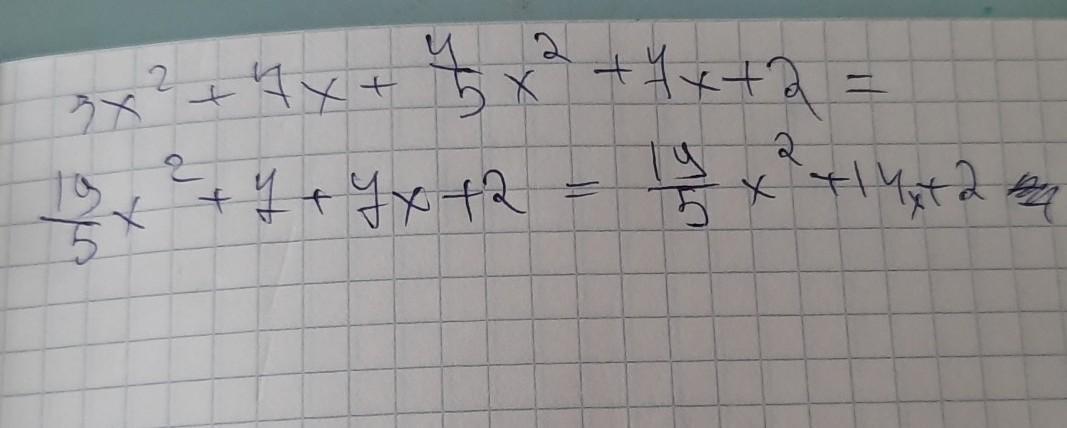 3x² + 7x + 4/5 x² + 7x + 2 =
19/5 x² + 7 + 7x + 2 = 19/5 x² + 14x + 2